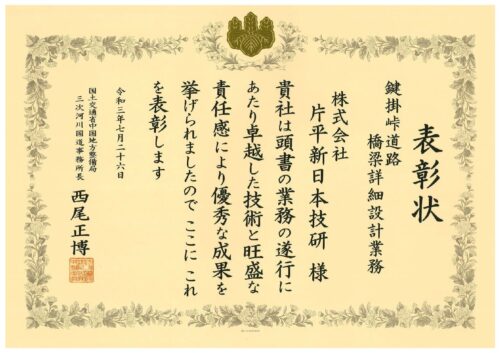 表彰状
鍵掛峠道路
橋梁詳細設計業務
株式会社
片平新日本技研 様
貴社は頭書の業務の遂行に
あたり卓越した技術と旺盛な
責任感により優秀な成果を
挙げられましたので ここに これ
を表彰します
令和三年七月二十六日
国土交通省中国地方整備局
三次河川国道事務所長
西尾正博